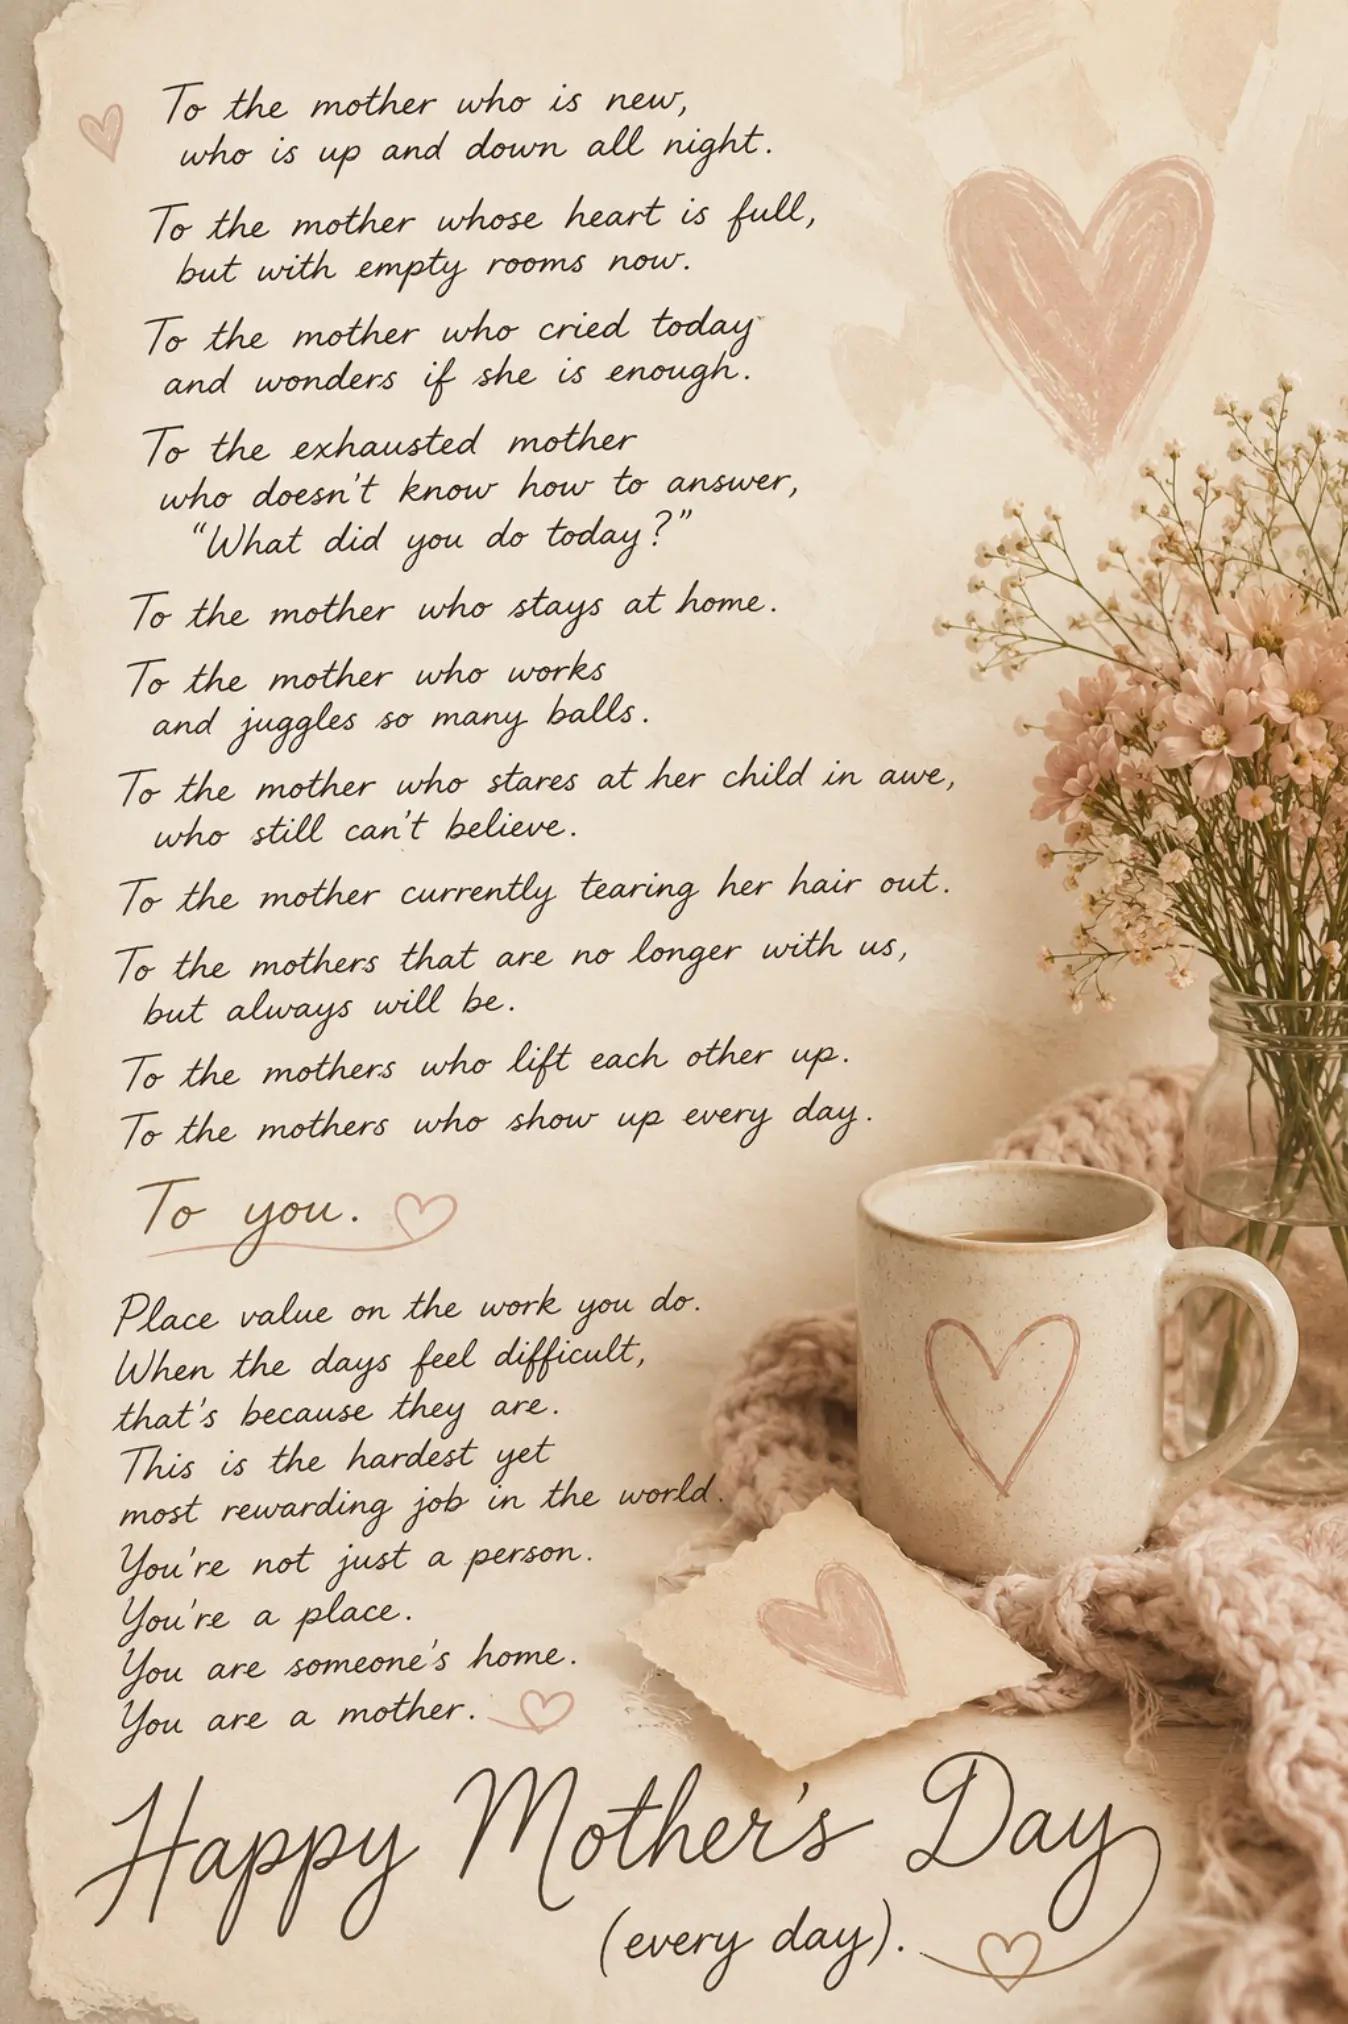 To the mother who is new,
who is up and down all night.
To the mother whose heart is full,
but with empty rooms now.
To the mother who cried today
and wonders if she is enough.
To the exhausted mother
who doesn't know how to answer,
“What did you do today?”
To the mother who stays at home.
To the mother who works
and juggles so many balls.
To the mother who stares at her child in awe,
who still can't believe.
To the mother currently tearing her hair out.
To the mothers that are no longer with us,
but always will be.
To the mothers who lift each other up.
To the mothers who show up every day.
To you.
Place value on the work you do.
When the days feel difficult,
that's because they are.
This is the hardest yet
most rewarding job in the world.
You're not just a person.
You're a place.
You are someone's home.
You are a mother.
Happy Mother's Day
(every day).